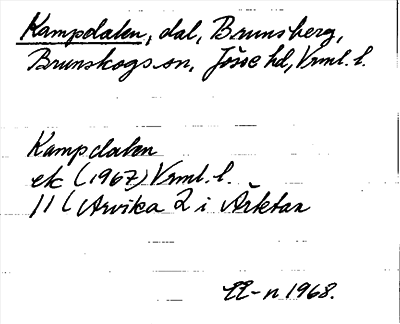 Kampdalen, dal, Brunsberg,
Brunskogs sn, Jösse hd, Vrml. l.
Kampdalen
ek (1967) Vrml. l.
11 ( Arvika 2 i
1968.